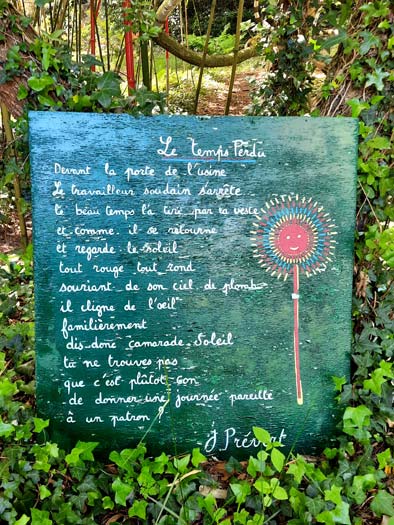 Le temps Perdu
Devant la porte de l'usine
Le travailleur soudain s'arrête
le beau temps l'a tiré par la veste
et comme il se retourne
et regarde le soleil
tout rouge tout rond
souriant de son ciel de plomb
il cligne de l'œil
familièrement
dis donc camarade Soleil
tu ne trouves pas
que c'est plutôt con
de donner une journée pareille
à un patron
J Prévert